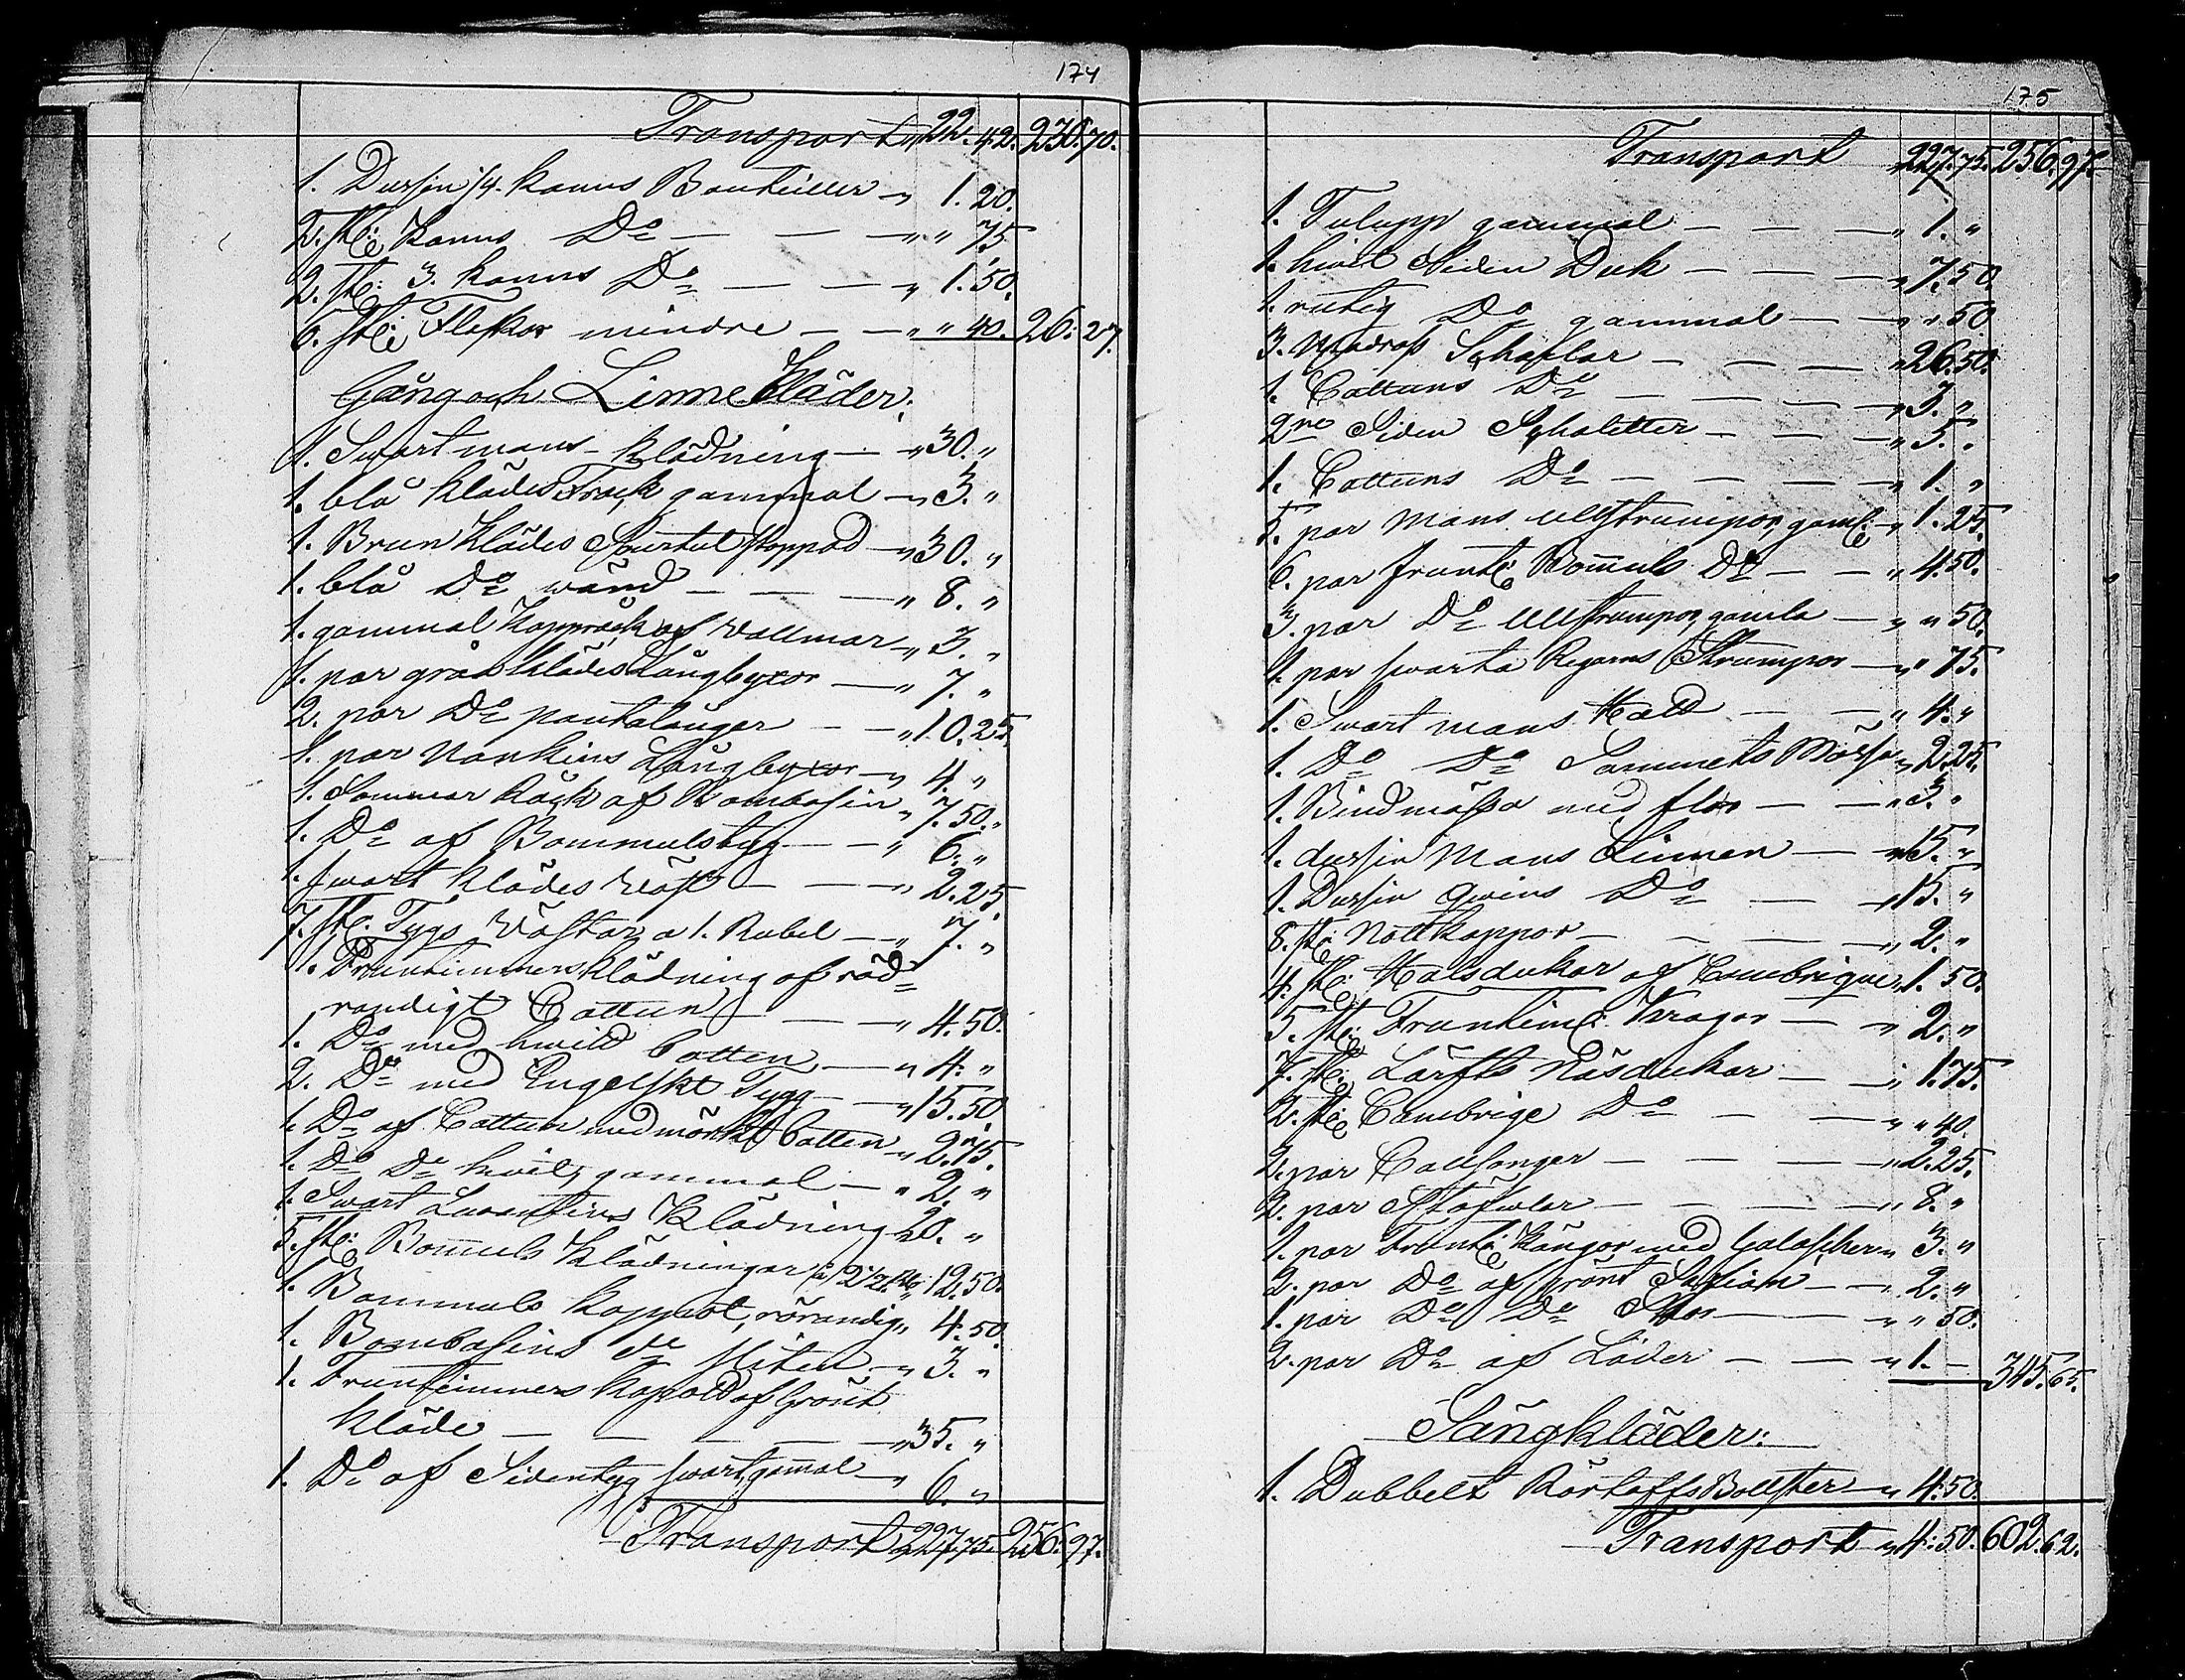 174
Transport " 22. 42. 230. 70.
1. Dussin 1/4. kanns Bouteiller — " 1. 20.
2. st: Kanns Do — — " " 75
2. st: 3. kanns Do — — " 1. 50.
6. st: Flaskor mindre — — " " 40. 26. 27.
Gång och Linne Kläder.
1. Swart mans-klädning — " 30. "
1. blå klädes Frack, gammal — " 3. "
1. Brun klädes Surtut stoppad — " 30. "
1. blå Do wänd — — " 8. "
1. gammal Kapprock af Vallmar — " 3. "
1. par grå klädes Långbyxor — " 7. "
2. par Do pantalonger — — " 10. 25.
1. par Nankins Långbyxor — " 4. "
1. Sommar Råck af Bombasin " 7. 50. "
1. Do af Bommulstyg — — " 6. "
1. swart klädes väst — — " 2. 25.
7. st: Tygs Västar a 1. Rubel — " 7. "
1. Fruntimmers klädning af röd=
randigt Cattun — — " 4. 50.
1. Do med hwild botten — " 4. "
2. Do med Engelskt Tygg — " 15. 50
1. Do af Cattun med mörk botten — " 2. 75.
1. Do Do hwit, gammal — " 2. "
1. Swart Klädning 20. "
5. st: Bomuls Klädningar á 2 1/2 Rb " 12. 50.
1. Bommuls kappot, rörandig " 4. 50.
1. Bombasins do sliten — " 3. "
1. Fruntimmers Kapott af Grönt
kläde — — — — " 35. "
1. Do af Sidentyg swart, gamal — " 6. "
Transport 227. 75. 256. 97.
175
Transport 227. 75. 256. 97.
1. Tulupp gammal — — — " 1. "
1. hwit Siden Duk — — — " 7. 50
1. rutig Do gammal — — " " 50
3. Schaslar — — — " 26. 50.
1. Cattuns Do — — — — " 3. "
2ne Siden Schaletter — — — " 5. "
1. Cattuns Do — — — — " 1. "
5. par Mans ullstrumpor, gaml: — " 1. 25.
6. par frunt: Bomuls Do — — " 4. 50.
3. par Do Ullstrumpor, gamla — " " 50.
1. par swarta Strumpor — " " 75.
1. Swart mans Hatt — — " 4. "
1. Do Do Sammets Mössa " 2. 25.
1. Bindmössa med flor — — " 3. "
1. dussin Mans Linnen — " 15. "
1. Dussin Qwins Do — — " 15. "
8. st: Nattkappor — — — — " 2. "
4. st: Halsdukar af Cambrique, 1. 50.
5. st: Fruntim: Kragor — — " 2. "
7. st: Lärfts Näsdukar — — " 1. 75.
2. st: Cambrige Do — — " " 40.
2. par Callsonger — — — " 2. 25.
2. par Stöfwlar — — — — " 8. "
1. par Frunt: Kängor med Galoscher " 3. "
2. par Do af Grönt Safian — — " 2. "
1. par Do Do — — " " 50.
2. par Do af Läder — — — " 1. — 345. 65.
Sängkläder:
1. Dubbelt Bollster — " 4. 50.
Transport " 4. 50. 602. 62.